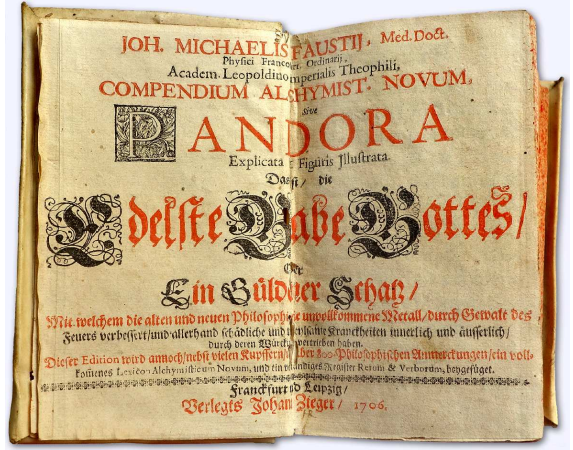 JOH. MICHAELIS FAUSTIJ, Med. Doct.
Physici Francofurt. Ordinarij,
Academ. Leopoldino Imperialis Theophili,
COMPENDIUM ALCHYMIST. NOVUM,
Sive
PANDORA
Explicata & Figuris Jllustrata.
Das ist / die
Edelste Gabe Gottes /
Oder
Ein Güldner Schatz /
Mit welchem die alten und neuen Philosophi die unvollkommene Metall / durch Gewalt des
Feuers verbessert / und allerhand schädliche und Kranckheiten innerlich und äusserlich /
durch deren Würckung vertrieben haben.
Dieser Edition wird annoch / nebst vielen Kupffern / über 800 Philosophischen Anmerckungen / ein voll-
kom̄enes Lexicon Alchymisticum Novum, und ein vollständiges Register Rerum & Verborum, beygefüget.
Franckfurt und Leipzig /
Verlegts Johann Zieger / 1706.